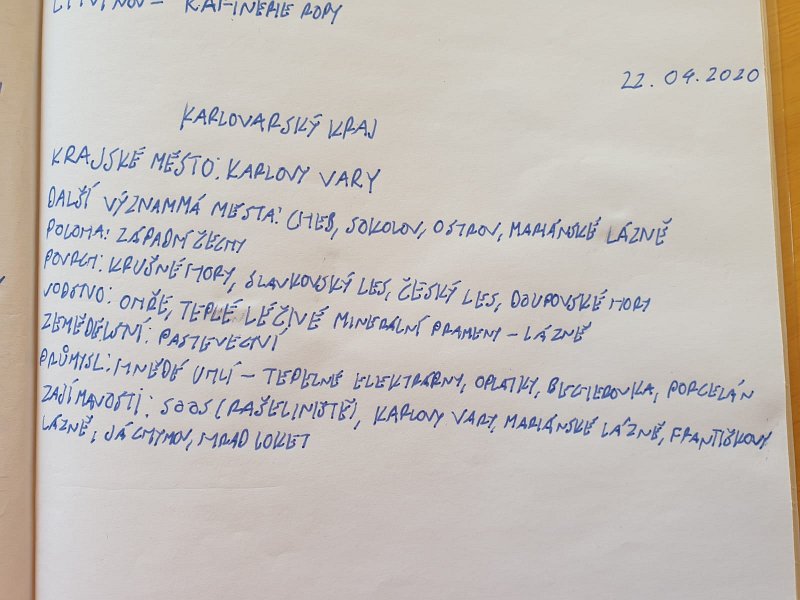 LITVÍNOV - RAFINERIE ROPY
22.04.2020
KARLOVARSKÝ KRAJ
KRAJSKÉ MĚSTO: KARLOVY VARY
DALŠÍ VÝZNAMMÁ MĚSTA: CHEB, SOKOLOV, OSTROV, MARIÁNSKÉ LÁZNĚ
POLOHA: ZÁPADNÍ ČECHY
POVRCH: KRUŠNÉ HORY, SLAVKOVSKÝ LES, ČESKÝ LES, DOUPOVSKÉ HORY
VODSTVO: OHŘE, TEPLÉ LÉČIVÉ MINERÁLNÍ PRAMENY - LÁZNĚ
ZEMĚDĚLSTVÍ: PASTEVECTVÍ
PRŮMYSL: HNĚDÉ UHLÍ - TEPELNÉ ELEKTRÁRNY, OPLATKY, BECHEROVKA, PORCELÁN
ZAJÍMAVOSTI: SOOS (RAŠELINIŠTĚ), KARLOVY VARY, MARIÁNSKÉ LÁZNĚ, FRANTIŠKOVY
LÁZNĚ, JÁCHYMOV, HRAD LOKET